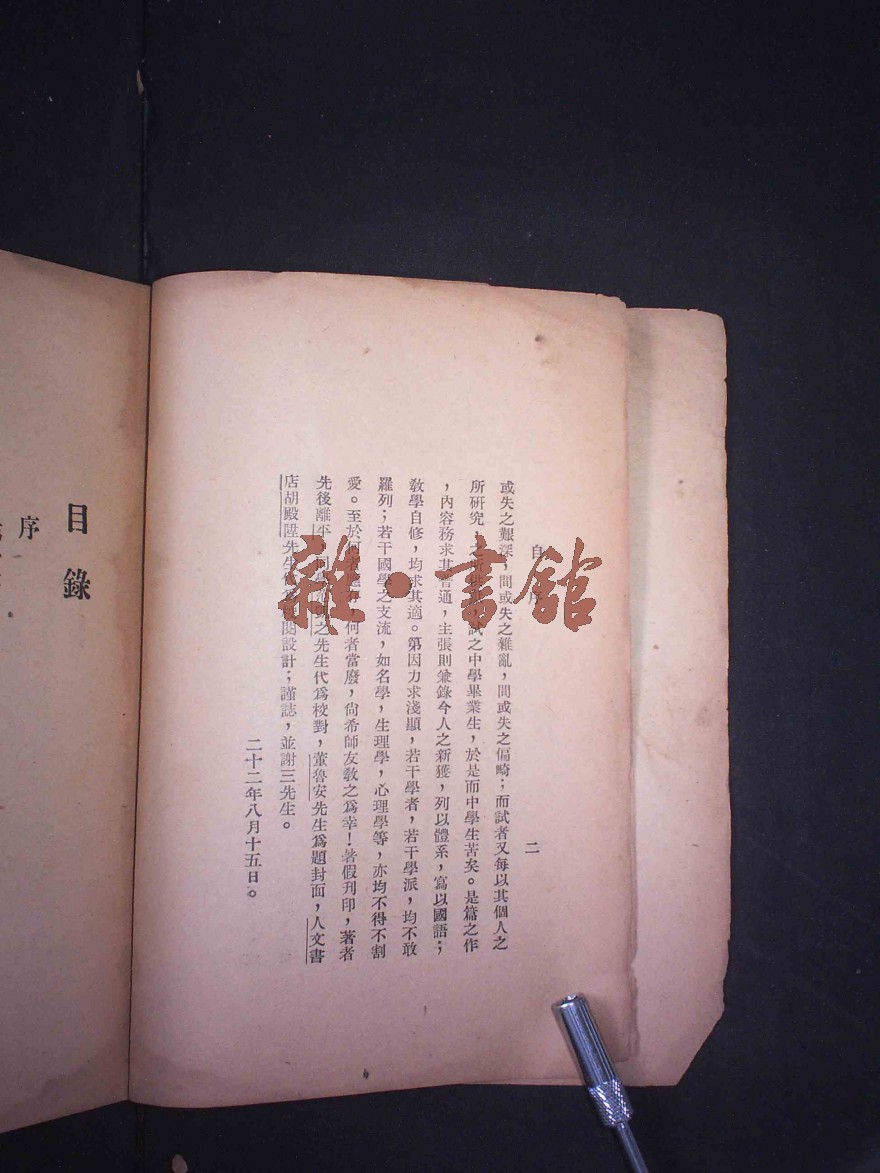 自序
二
或失之艱深，間或失之雜亂，間或失之偏畸；而試者又每以其個人之
所研究，試之中學畢業生，於是而中學生苦矣。是篇之作
，內容務求其普通，主張則兼錄今人之新獲，列以體系，寫以國語；
敎學自修，均求其適。第因力求淺顯，若干學者，若干學派，均不敢
羅列；若干國學之支流，如名學，生理學，心理學等，亦均不得不割
愛。至於何者應存，何者當廢，尙希師友敎之爲幸！暑假刊印，著者
先後離平，同學之先生代爲校對，董魯安先生爲題封面，人文書
店胡殿陞先生設計；謹誌，並謝三先生。
二十二年八月十五日。
目錄
序
雜·書館